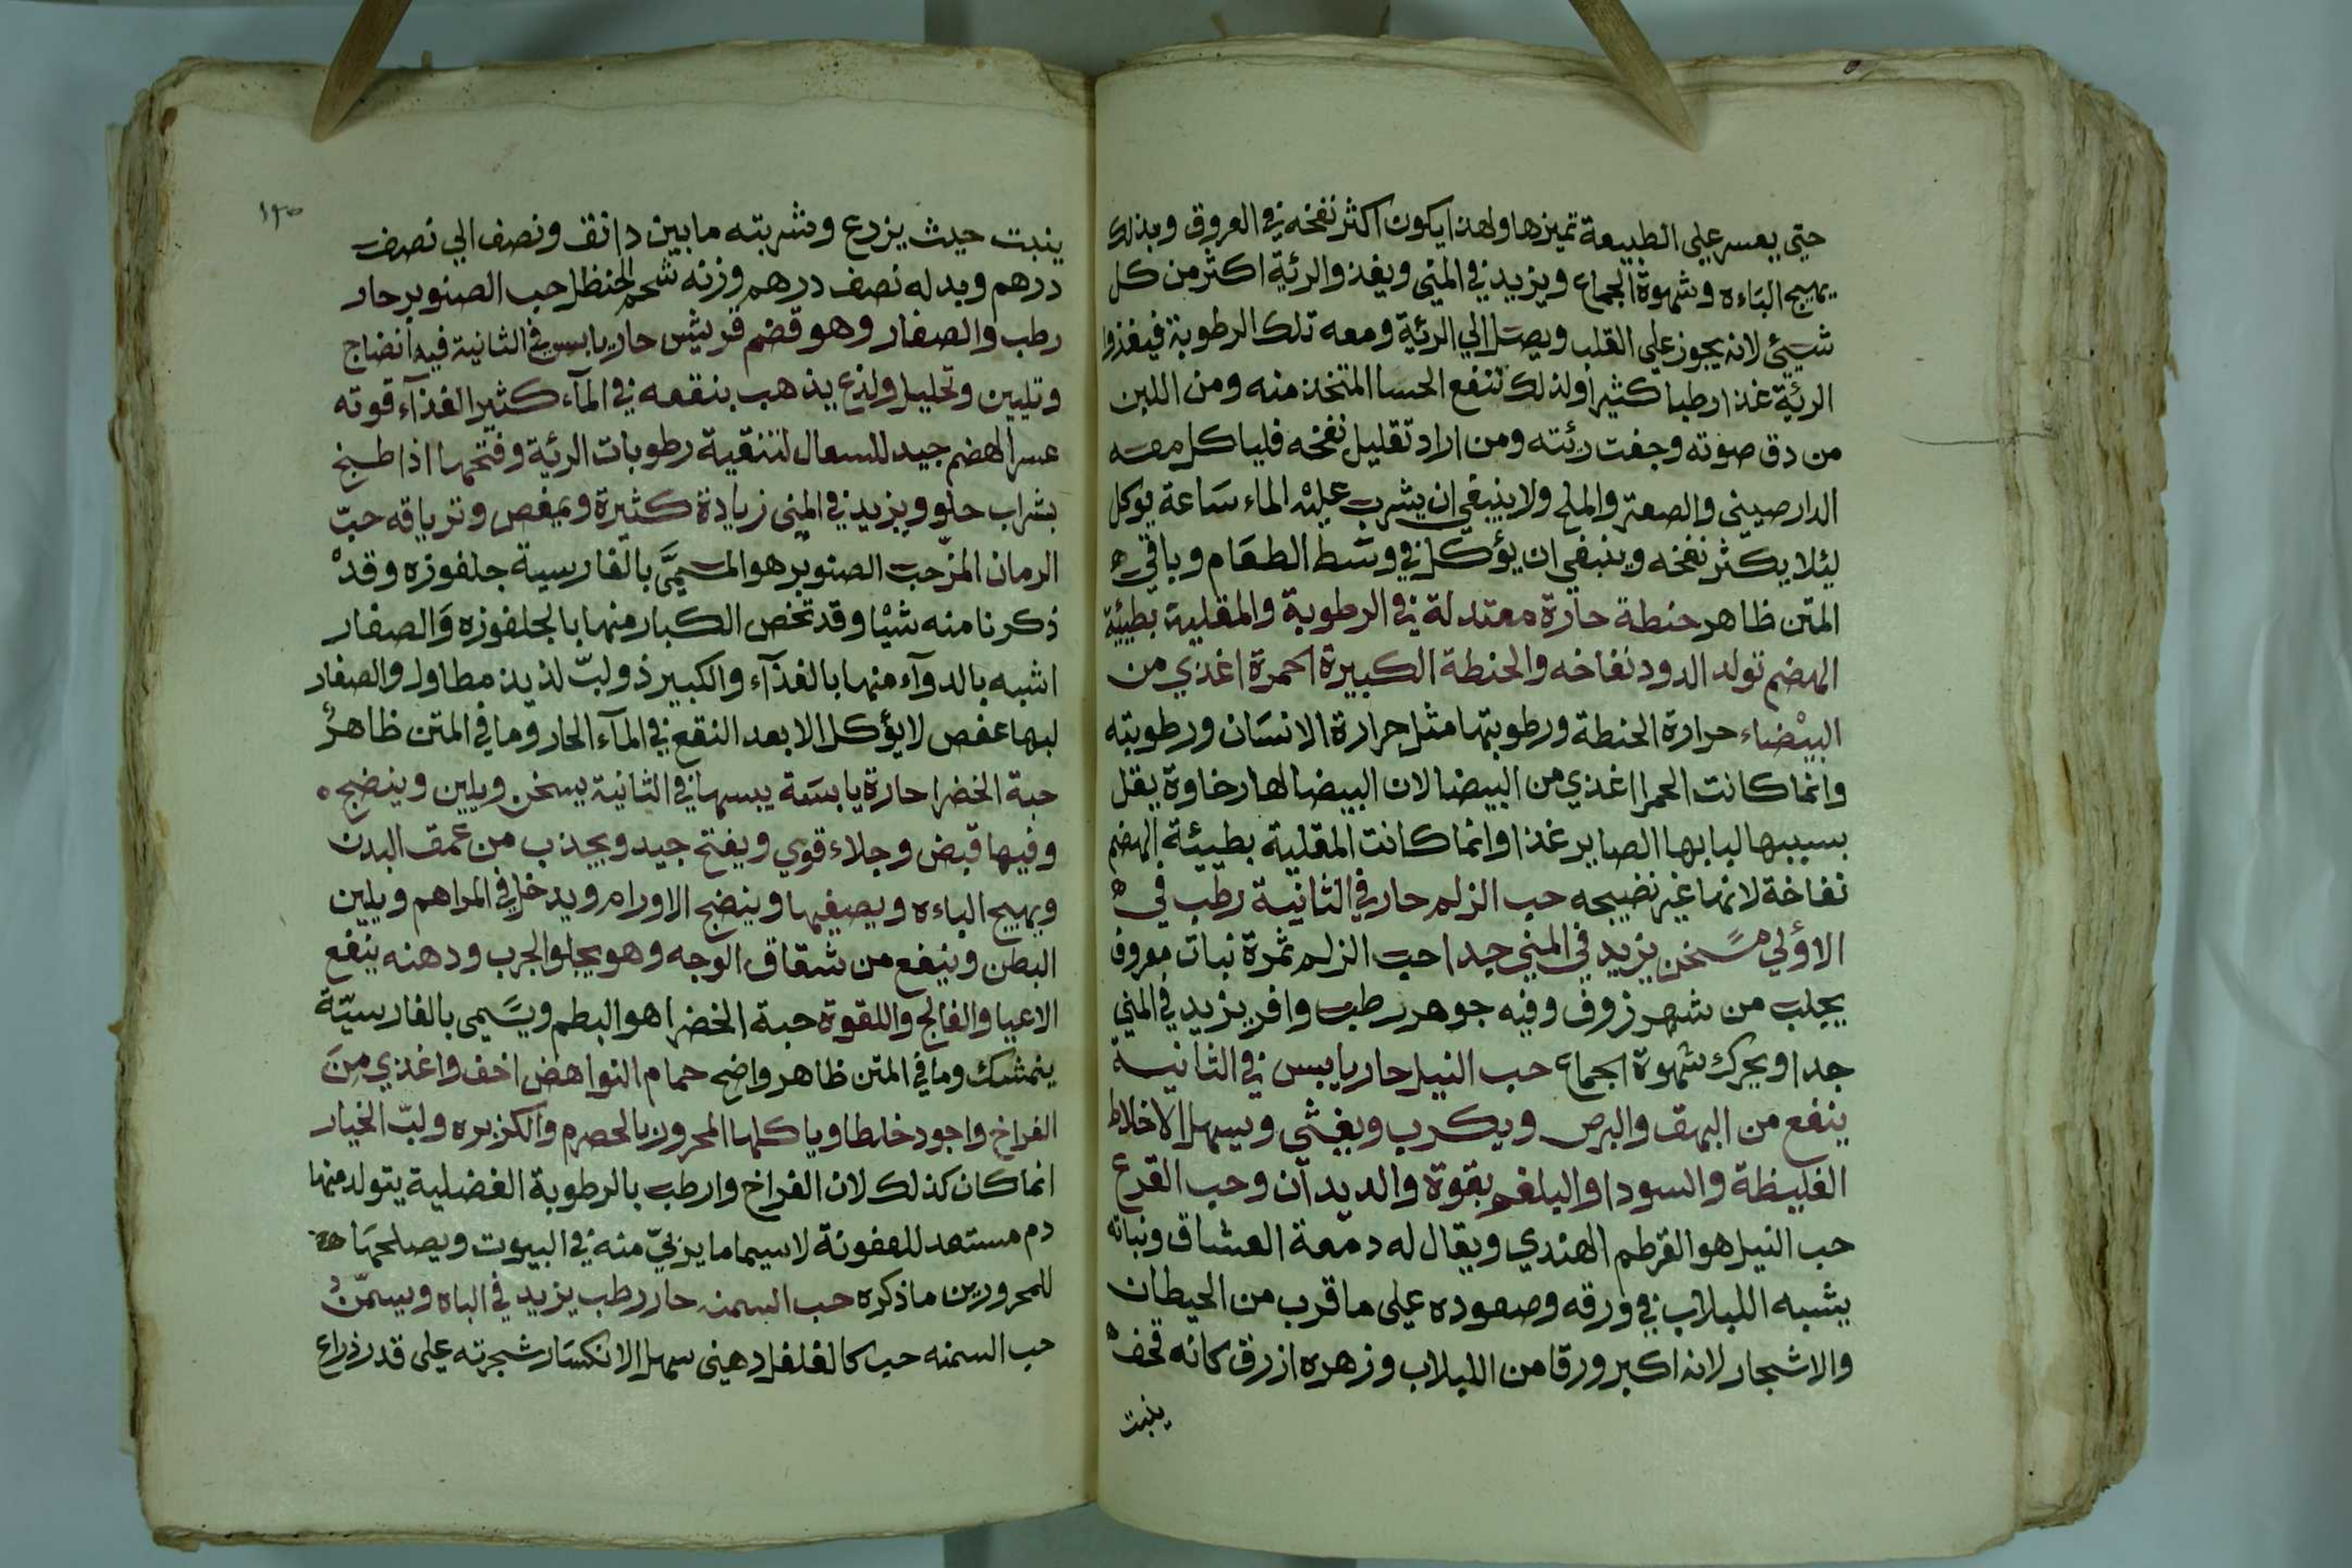 حتي يعسر علي الطبيعة تميزها ولهذا يكون اكثر نفخه في العروق وبذلك
يهيج الباءه وشهوة الجماع ويزيد في المني ويغذ والرئية اكثر من كل
شيئ لانه يجوز علي القلب ويصل الي الرئية ومعه تلك الرطوبة فيغذوا
الرئية غذا رطبا كثيرا ولذلك تنفع الحسا المتخذ منه ومن اللبن
من دق صوته وجفت رئته ومن اراد تقليل نفخه فلياكل معه
الدارصيني والصعتر والملح ولا ينبغي ان يشرب عليه الماء ساعة يوكل
ليئلا يكثر نفخه وينبغي ان يؤكل في وسط الطعام وباقي
المتن ظاهر حنطة حارة معتدلة في الرطوبة والمقلية بطيئة
الهضم تولد الدود نفاخه والحنطة الكبيرة احمرة اغذي من
البيضاء حرارة الحنطة ورطوبتها مثل حرارة الانسان ورطوبته
وانما كانت الحمرا اغذي من البيضا لان البيضا لها رخاوة يقل
بسببها لبابها الصاير غذا وانما كانت المقلية بطيئة الهضم
نفاخة لانها غير نضيجه حب الزلم حار في الثانية رطب في
الاؤلي مسخن يزيد في المني جيدا حب الزلم ثمرة نبات معروف
يجلب من شهرزوف وفيه جوهر رطب وافر يزيد في المني
جدا ويحرك شهوة الجماع حب النيل حار يابس في الثانية
ينفع من البهق والبرص ويكرب ويغثي ويسهل الاخلاط
الغليظة والسودا والبلغم بقوة والديدان وحب القرع
حب النيل هو القرطم الهندي ويقال له دمعة العشاق ونباته
يشبه اللبلاب في ورقه وصعوده علي ما قرب من الحيطان
والاشجار لانه اكبر ورقا من اللبلاب وزهره ازرق كانه قحف
ينبت
١٩٥
ينبت حيث يزرع وشربته ما بين دانق ونصف الي نصف
درهم وبدله نصف درهم وزنه شحم الحنظل حب الصنوبر حار
رطب والصغار وهو قضم قريش حار يابس في الثانية فيه انضاج
وتليين وتحليل ولذع يذهب بنقعه في المآء كثير الغذآء قوته
عسر الهضم جيد للسعال لتنقية رطوبات الرئية وفتحها اذا طبخ
بشراب حلو ويزيد في المني زيادة كثيرة ويمغص وترياقه حبّ
الرمان المزّ حب الصنوبر هو المسمّي بالفارسية جلغوزه وقد
ذكرنا منه شيئا وقد تخص الكبار منها بالجلغوزه والصغار
اشبه بالدوآء منها بالغذآء والكبير ذو لبّ لذيذ مطاول والصغار
لبها عفص لا يؤكل الا بعد النقع في المآء الحار وما في المتن ظاهر
حبة الخضرا حارة يابسة يبسها في الثانية يسخن ويلين وينضج
وفيها قبض وجلاء قوي ويفتح جيد ويجذب من عمق البدن
ويهيج الباءه ويصفيها وينضج الاورام ويدخل في المراهم ويلين
البطن وينفع من شقاق الوجه وهو يجلو الجرب ودهنه ينفع
الاعيا والفالج واللقوة حبة الخضرا هو البطم ويسمي بالفارسيّة
ينمشك وما في المتن ظاهر واضح حمام النواهض اخف واغذي من
الفراخ واجود خلطا وياكلها المحرورن بالحصرم والكزبره ولبّ الخيار
انما كان كذلك لان الفراخ وارطب بالرطوبة الفضلية يتولد منها
دم مستعد للعفونة لا سيما ما يربيّ منه في البيوت ويصلحها
للمحرورين ما ذكره حب السمنه حار رطب يزيد في الباه ويسمّن
حب السمنه حب كالفلفل دهيني سهل الانكسار شجرته علي قدر ذراع